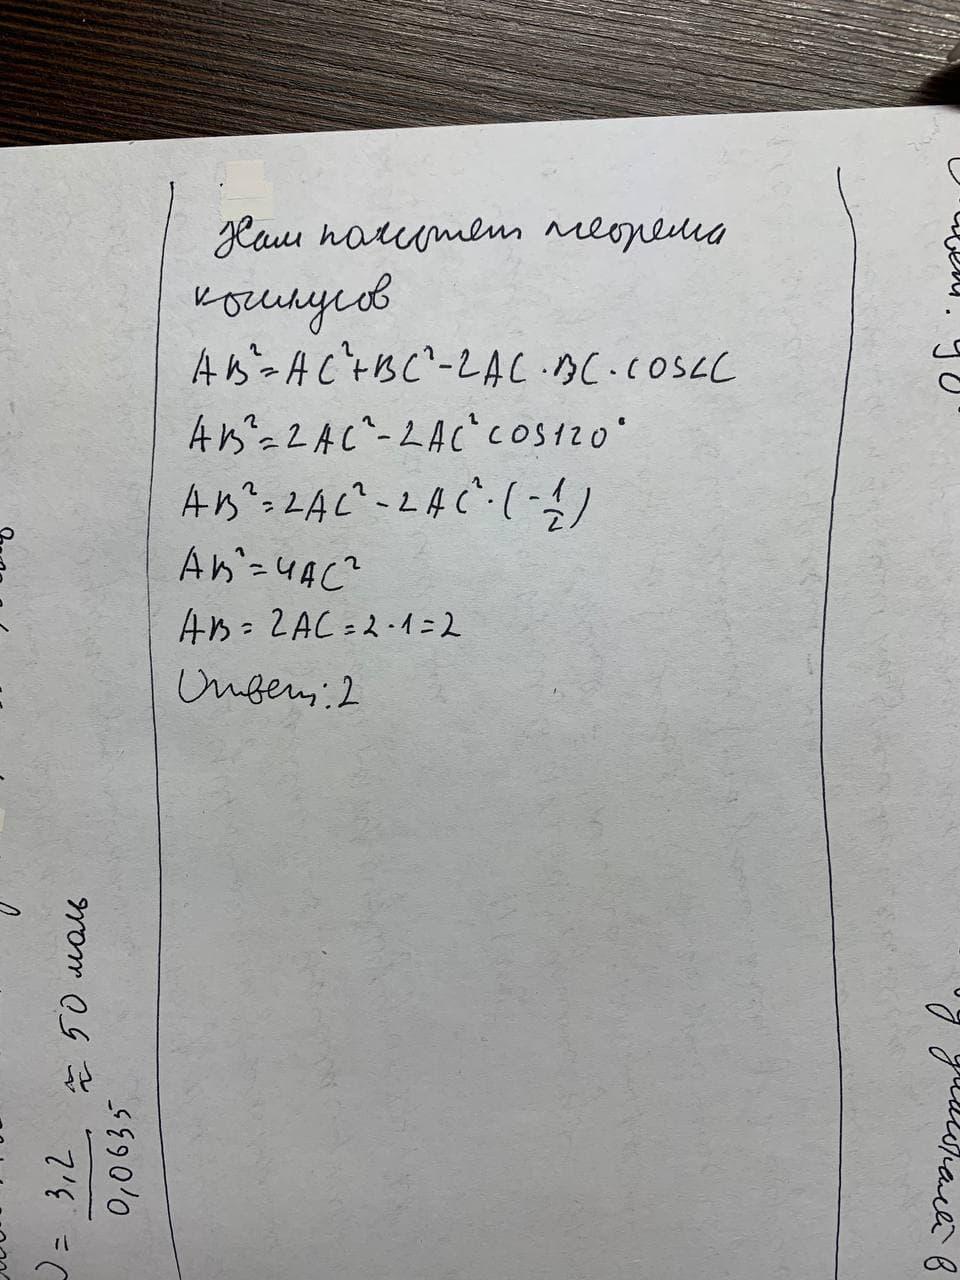 Нам поможет теорема
косинусов
AB²=AC²+BC²-2AC·BC·COS∠C
AB²=2AC²-2AC²COS120°
AB²=2AC²-2AC²·(-1/2)
AB²=4AC²
AB=2AC=2·1=2
Ответ:2
= 3,2/0,0635 ≈ 50 моль